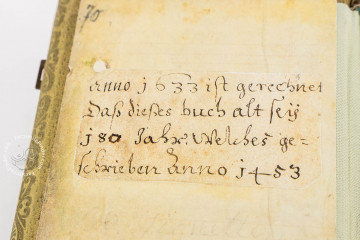 70
Anno 1633 ist gerechnet
Daß dießes buch alt sey
180 Jahr, Welches ge=
schrieben Anno 1453